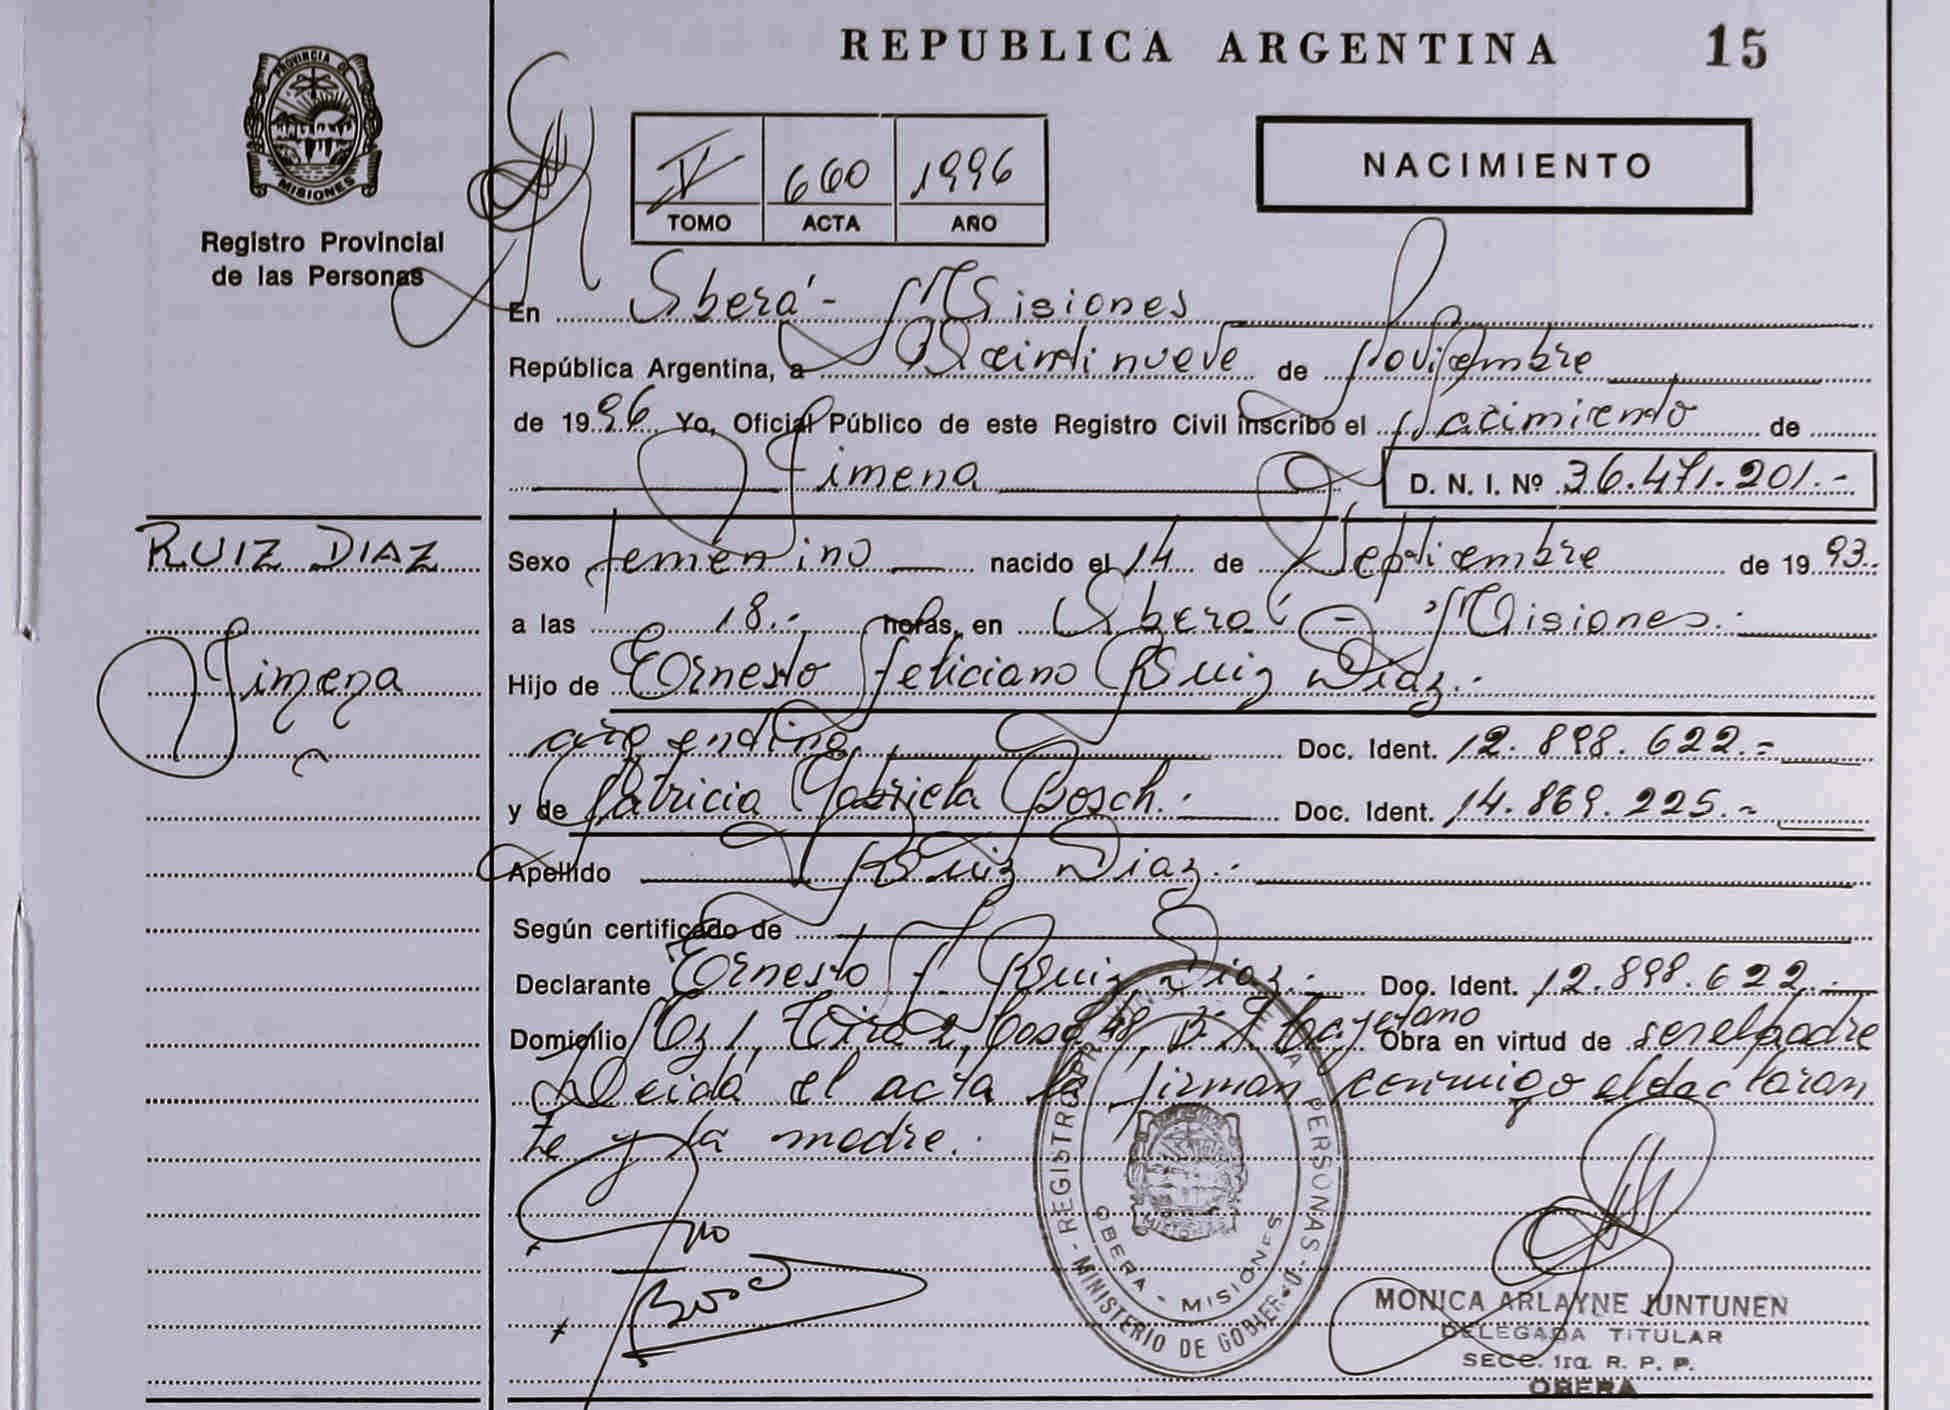 REPUBLICA ARGENTINA 15
PROVINCIA DE
MISIONES
Registro Provincial
de las Personas
V 660 1996
TOMO ACTA AÑO
NACIMIENTO
En Oberá - Misiones
República Argentina, a Veintinueve de Noviembre
de 1996 Yo, Oficial Público de este Registro Civil inscribo el Nacimiento de
Jimena D. N. I. Nº 36.471.201.-
RUIZ DIAZ
Jimena
Sexo femenino nacido el 14 de Septiembre de 1993.
a las 18.- horas, en Oberá - Misiones.-
Hijo de Ernesto Feliciano Ruiz Diaz.-
argentina, Doc. Ident. 12.898.622.-
y de Patricia Gabriela Bosch.- Doc. Ident. 14.869.225.-
Apellido Ruiz Diaz.-
Según certificado de
Declarante Ernesto F. Ruiz Diaz.- Doc. Ident. 12.898.622.-
Domicilio Mz 1, Tira 2, Casa 48, Bº Obra en virtud de ser el padre
Leida el acta la firman conmigo el declaran
te y la madre.-
Bosch
REGISTRO PROVINCIAL DE LAS PERSONAS
MINISTERIO DE GOBIERNO
OBERA - MISIONES
MONICA ARLAYNE JUNTUNEN
DELEGADA TITULAR
SECC. 1ra. R. P. P.
OBERA